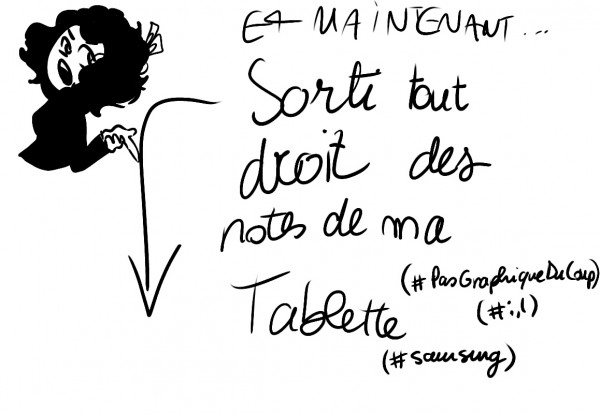 Et MAINTENANT...
Sorti tout
droit des
notes de ma
Tablette
(#PasGraphiqueDuCoup)
(#;,,()
(#samsung)